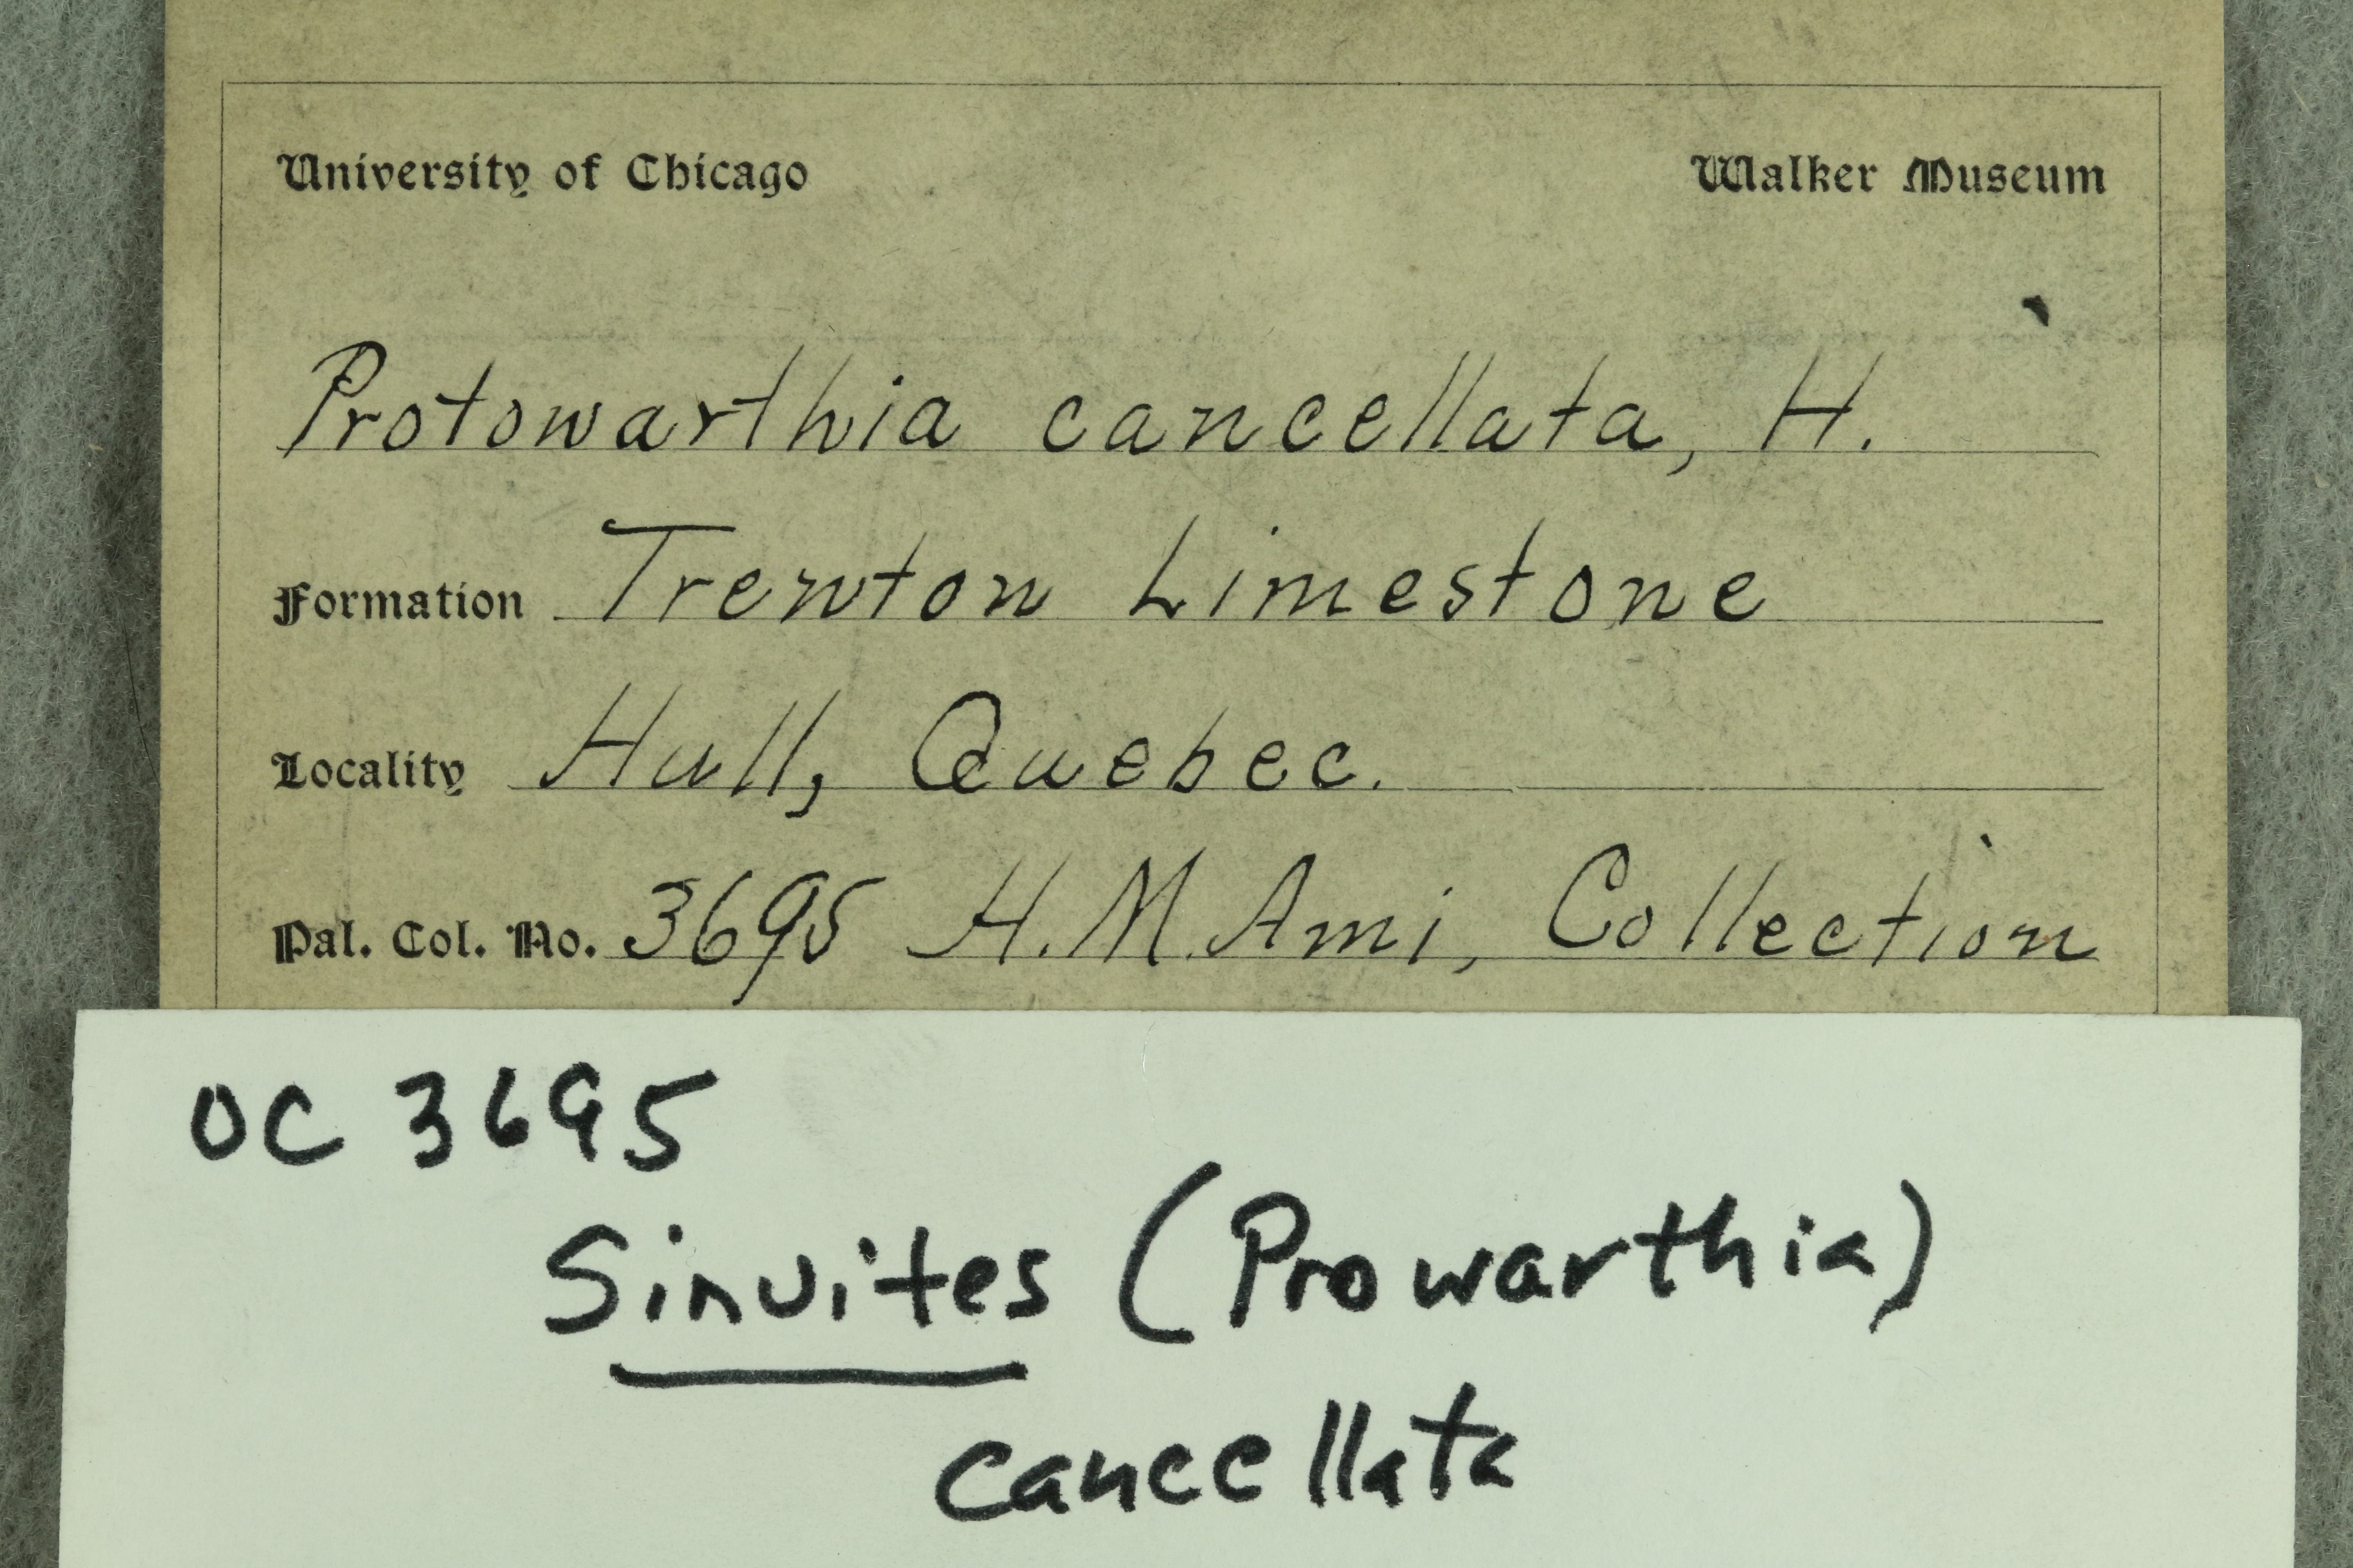 University of Chicago Walker Museum
Protowarthia cancellata, H.
Formation Trenton Limestone
Locality Hull, Quebec.
Pal. Col. No. 3695 H. M. Ami, Collection
OC 3695
Sinuites (Prowarthia)
cancellata